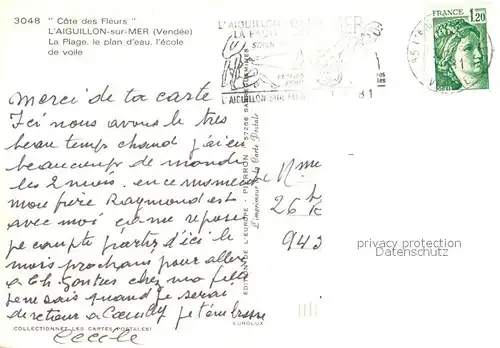 3048 " Côte des Fleurs "
L'AIGUILLON-sur-MER (Vendée)
La Plage, le plan d'eau, l'école
de voile
L'AIGUILLON SUR MER
LA FAUTE
L'AIGUILLON SUR MER
81
FRANCE
1,20
Merci de ta carte
Ici nous avons le très
beau temps chaud j'ai eu
beaucoup de monde
les 2 mois. en ce moment
mon frère Raymond est
avec moi ça me repose
je compte partir d'ici le
mois prochain pour aller
à Ch. Gontier chez ma fille
je ne sais quand je serai
de retour à je t'embrasse
Cecile
COLLECTIONNEZ LES CARTES POSTALES!
EDITION DE L'EUROPE - PIERRON - 57206 SARREGUEMINES
L'imprimeur de la Carte Postale
EUROLUX
Mme
26
943
privacy protection
Datenschutz